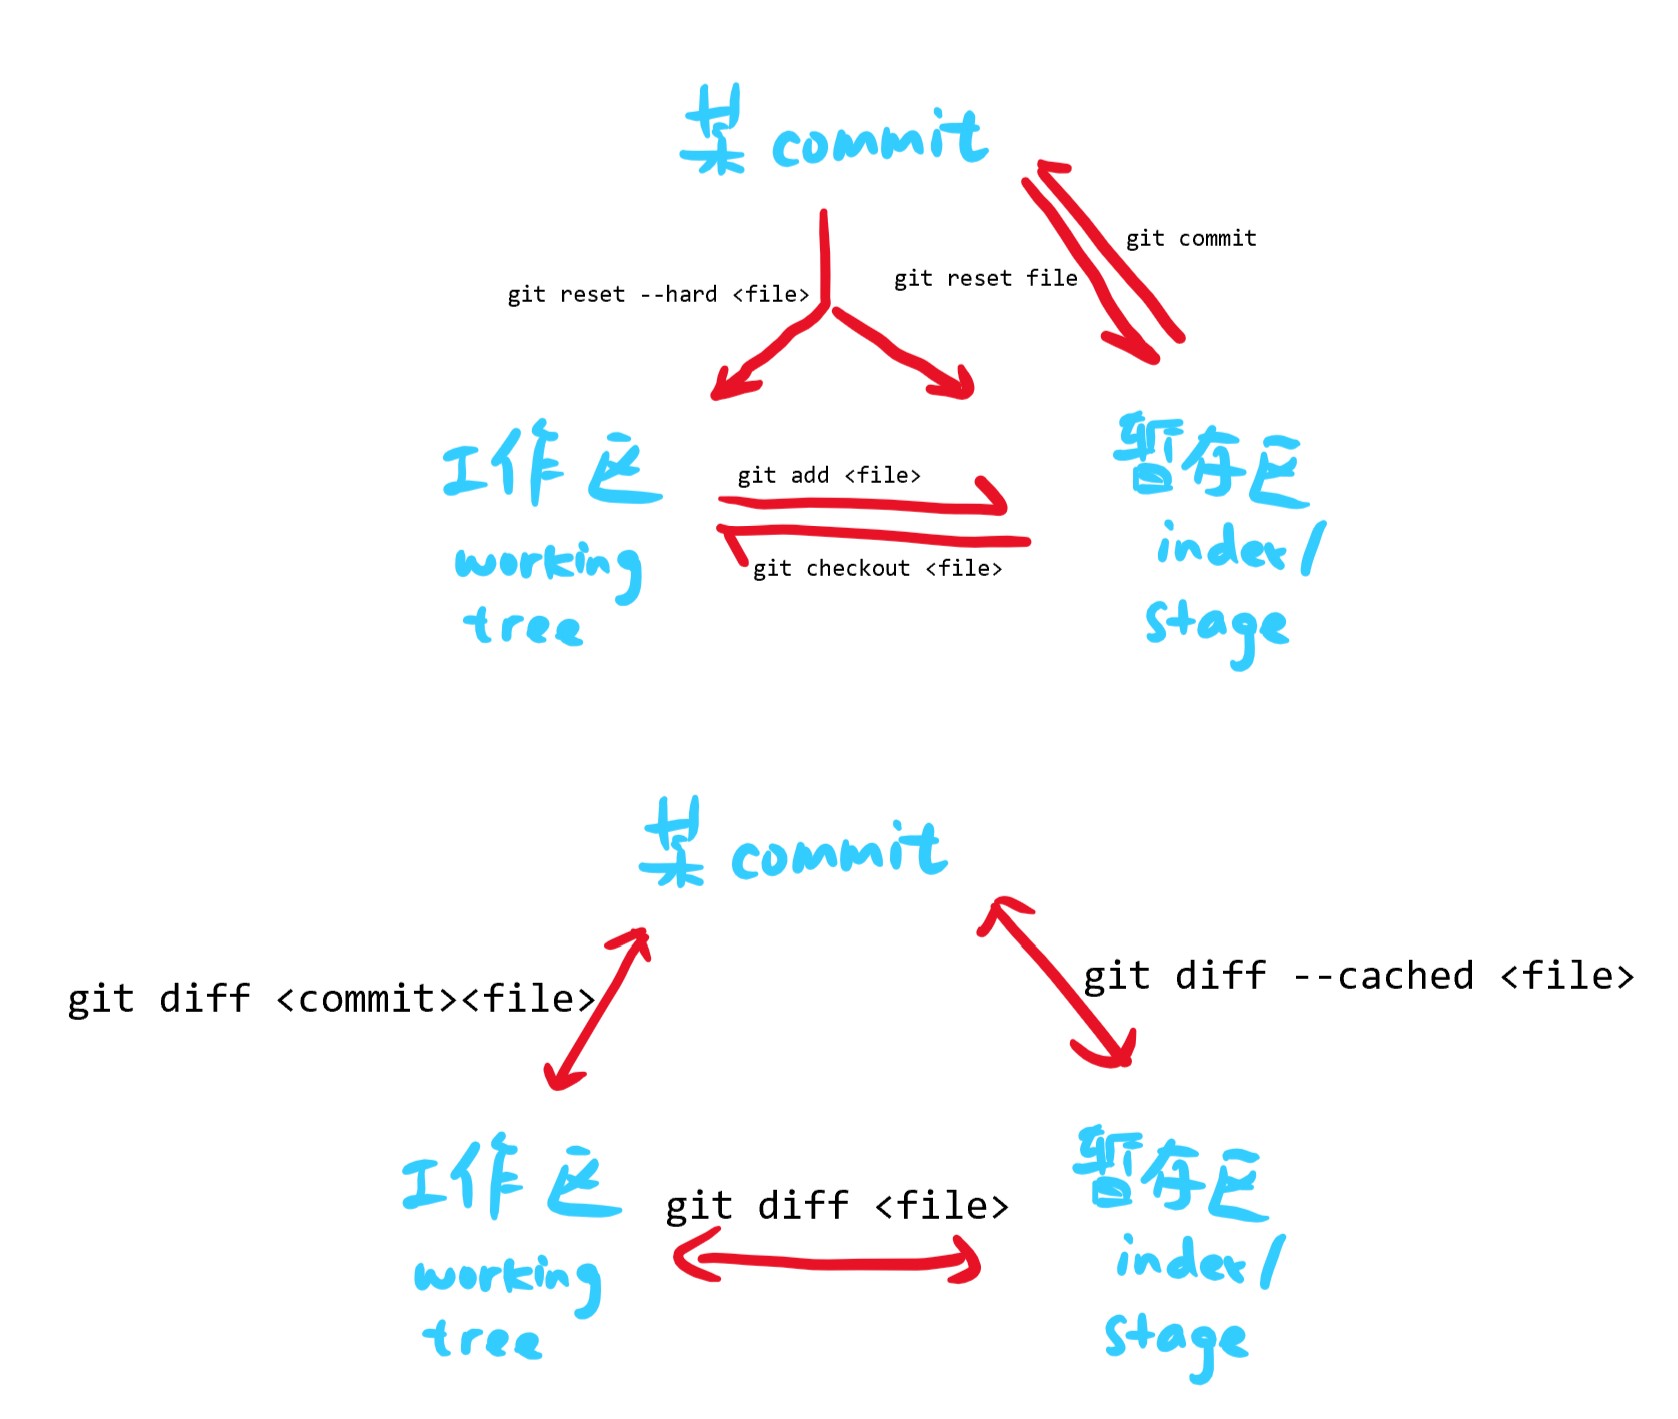 某commit
git commit
git reset file
git reset --hard <file>
工作区
working
tree
git add <file>
git checkout <file>
暂存区
index/
stage
某commit
git diff <commit><file>
git diff --cached <file>
工作区
working
tree
git diff <file>
暂存区
index/
stage